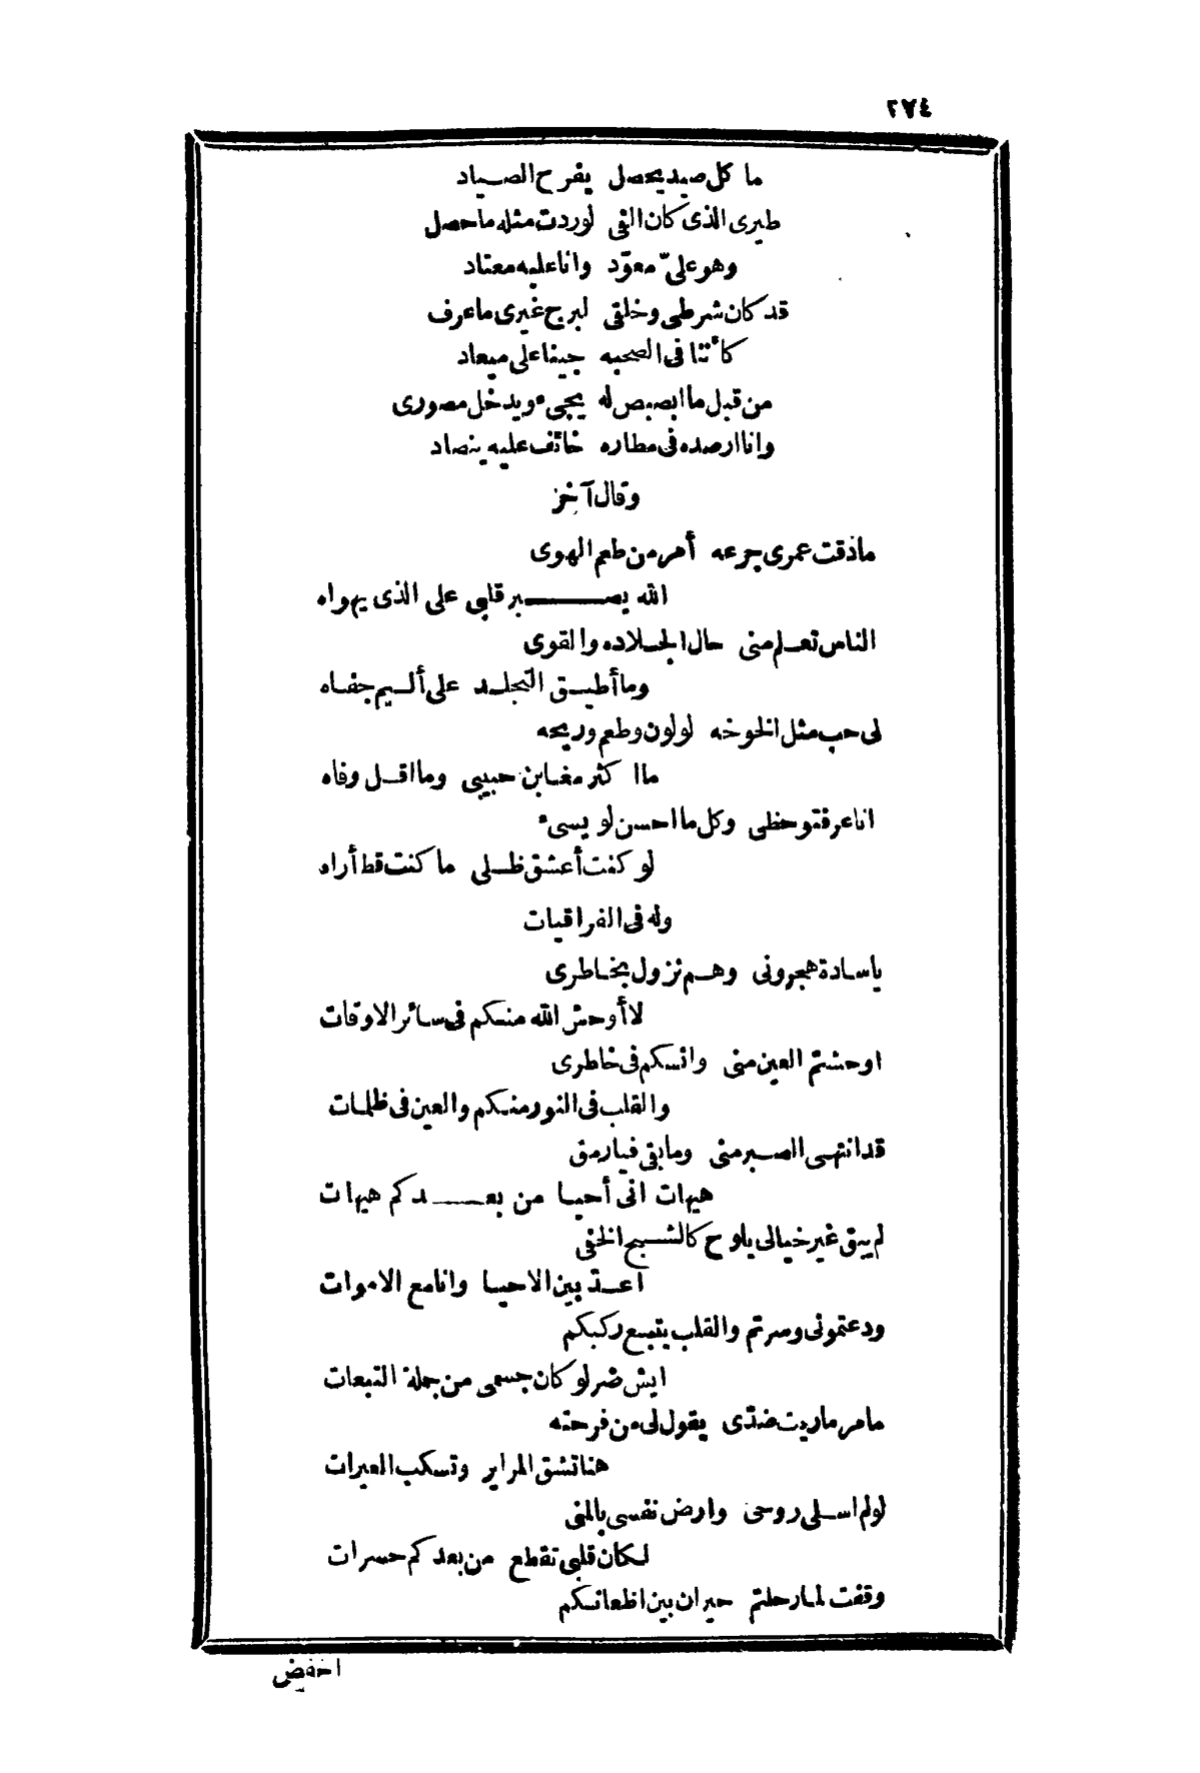 ٢٧٤
ما كل صيد يحصل يفرح الصياد
طيرى الذى كان الفى لوردت مثله ماحصل
وهو علىّ معوّد وانا عليه معتاد
قد كان شرطى وخلقى لبرج غيرى ماعرف
كأننا فى الصحبه جينا على ميعاد
من قبل ما ابصبص له يجىء ويدخل مصورى
وانا ارصده فى مطاره خائف عليه ينصاد
وقال آخر
ماذقت عمرى جرعه أمر من طعم الهوى
الله يصبر قلبى على الذى يهواه
الناس تعلم منى حال الجلاده والقوى
وما أطيق التجلد على أليم جفاه
لى حب مثل الخوخه لو لون وطعم وريحه
ما اكثر مغابن حبيبى وما اقل وفاه
انا عرفتو حظى وكل ما احسن لو يسىء
لو كنت أعشق ظلى ما كنت قط أراه
وله فى الفراقيات
ياسادة هجرونى وهم نزول بخاطرى
لا أوحش الله منكم فى سائر الاوقات
اوحشتم العين منى وانسكم فى خاطرى
والقلب فى النور منكم والعين فى ظلمات
قد انتهى الصبر منى ومابقى فيا رمق
هيهات انى أحيا من بعدكم هيهات
لم يبق غير خيالى يلوح كالشبح الخفى
اعدّ بين الاحيا وانا مع الاموات
ودعتمونى وسرتم والقلب يتبع ركبكم
ايش ضر لو كان جسمى من جملة التبعات
مامر ماريت ضدّى يقول لى من فرحته
هنا تشق المراير وتسكب العبرات
لولم اسلى روحى وارض نفسى بالمنى
لكان قلبى تقطع من بعدكم حسرات
وقفت لما رحلتم حيران بين اظعانكم
اخفيض